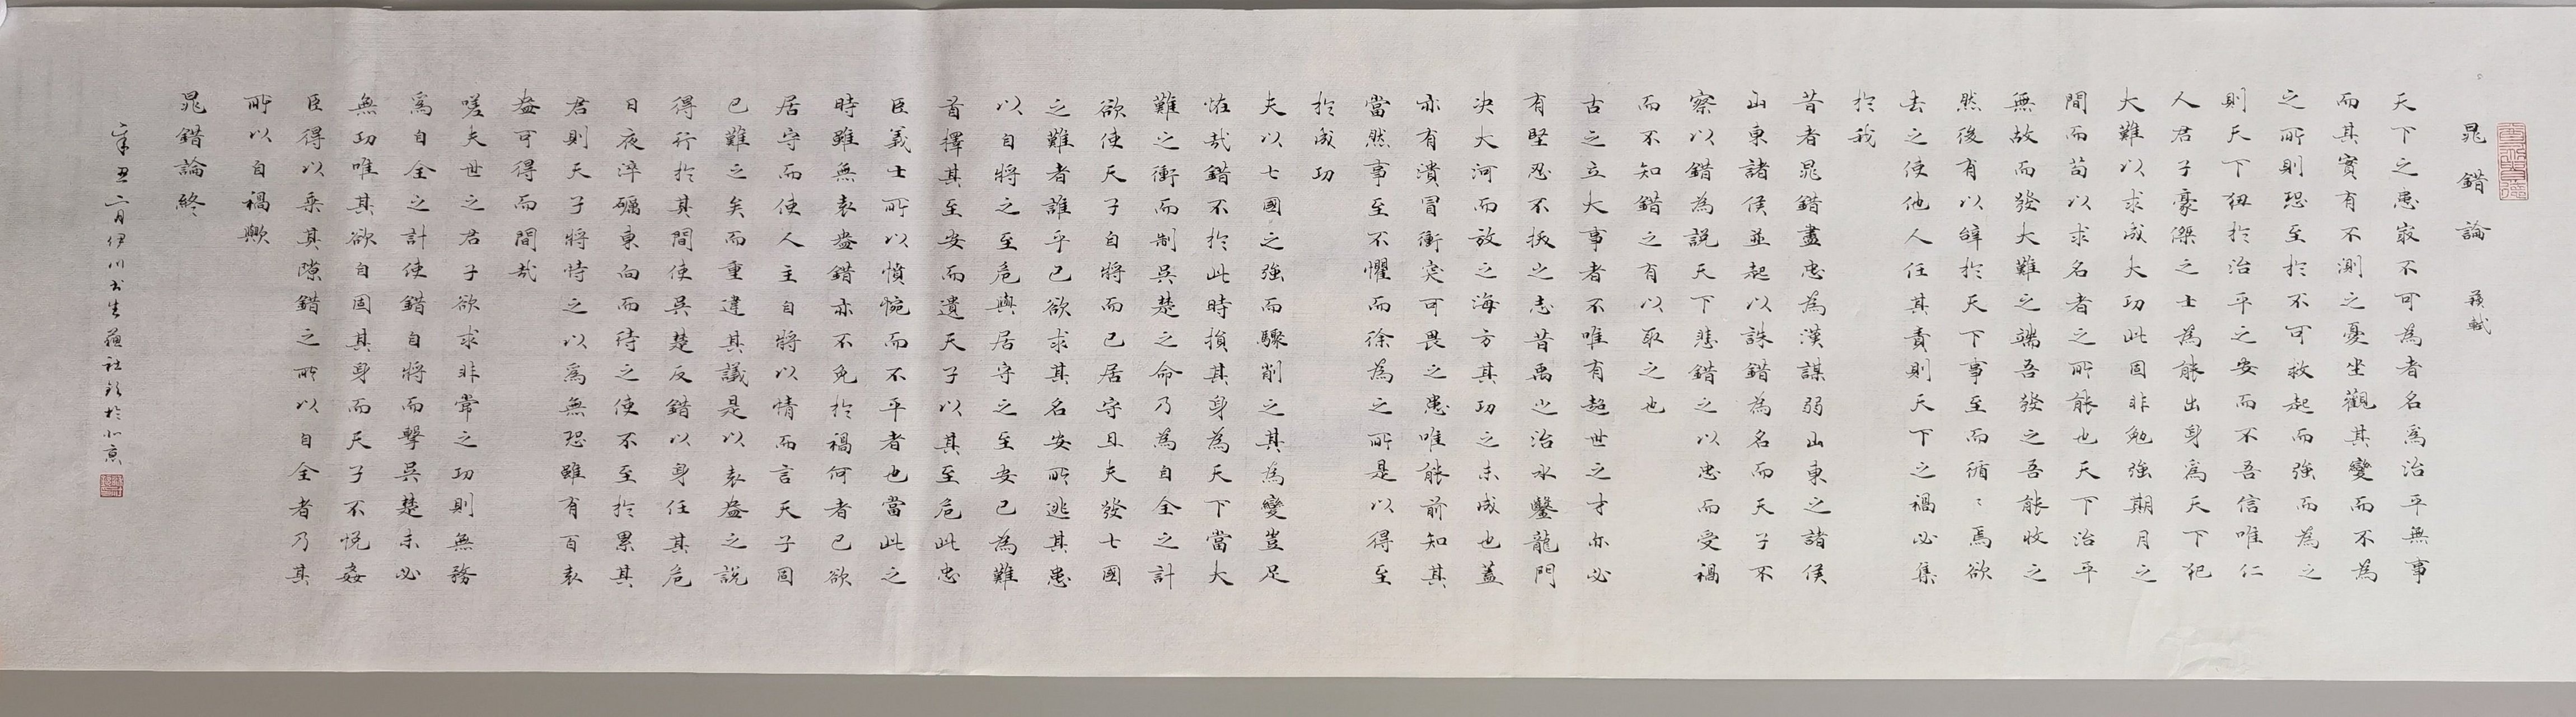 晁錯論 蘇軾
天下之患寂不可為者名為治平無事
而其實有不測之憂坐觀其變而不為
之所則恐至於不可救起而強而為之
則天下狃於治平之安而不吾信唯仁
人君子豪傑之士為能出身為天下犯
大難以求成大功此固非勉強期月之
間而苟以求名者之所能也天下治平
無故而發大難之端吾發之吾能收之
然後有以辭於天下事至而循〻焉欲
去之使他人任其責則天下之禍必集
於我
昔者晁錯盡忠為漢謀弱山東之諸侯
山東諸侯並起以誅錯為名而天子不
察以錯為說天下悲錯之以忠而受禍
而不知錯之有以取之也
古之立大事者不唯有超世之才亦必
有堅忍不拔之志昔禹之治水鑿龍門
決大河而放之海方其功之未成也蓋
亦有潰冒衝突可畏之患唯能前知其
當然事至不懼而徐為之所是以得至
於成功
夫以七國之強而驟削之其為變豈足
怪哉錯不於此時損其身為天下當大
難之衝而制吳楚之命乃為自全之計
欲使天子自將而己居守且夫發七國
之難者誰乎己欲求其名安所逃其患
以自將之至危與居守之至安己為難
首擇其至安而遺天子以其至危此忠
臣義士所以憤惋而不平者也當此之
時雖無袁盎錯亦不免於禍何者己欲
居守而使人主自將以情而言天子固
已難之矣而重違其議是以袁盎之說
得行於其間使吳楚反錯以身任其危
日夜淬礪東向而待之使不至於累其
君則天子將恃之以為無恐雖有百袁
盎可得而間哉
嗟夫世之君子欲求非常之功則無務
為自全之計使錯自將而擊吳楚未必
無功唯其欲自固其身而天子不悅姦
臣得以乘其隙錯之所以自全者乃其
所以自禍歟
晁錯論終
辛丑二月伊川書生於北京